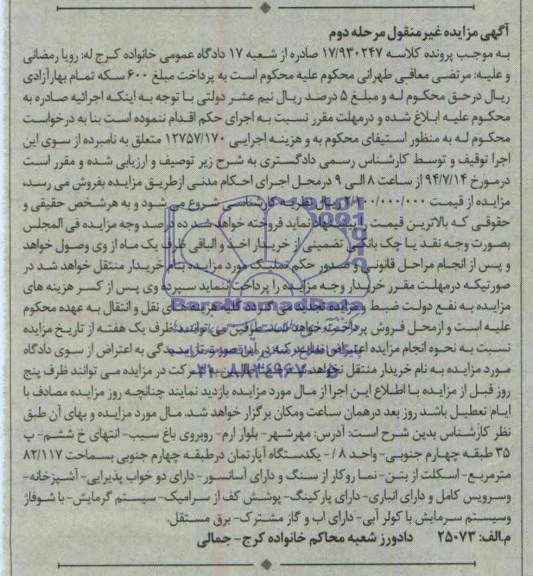 آگهی مزایده غیر منقول مرحله دوم
به موجب پرونده کلاسه ۱۷/۹۳۰۲۴۷ صادره از شعبه ۱۷ دادگاه عمومی خانواده کرج له: رویا رمضانی
و علیه: مرتضی معافی طهرانی محکوم علیه محکوم است به پرداخت مبلغ ۶۰۰ سکه تمام بهار آزادی
ریال در حق محکوم له و مبلغ ۵ درصد ریال نیم عشر دولتی با توجه به اینکه اجرائیه صادره به
محکوم علیه ابلاغ شده و در مهلت مقرر نسبت به اجرای حکم اقدام ننموده است بنا به درخواست
محکوم له به منظور استیفای محکوم به و هزینه اجرایی ۱۲۷۵۷/۱۷۰ متعلق به نامبرده از سوی این
اجرا توقیف و توسط کارشناس رسمی دادگستری به شرح زیر توصیف و ارزیابی شده و مقرر است
در مورخ ۹۴/۷/۱۴ از ساعت ۸ الی ۹ در محل اجرای احکام مدنی از طریق مزایده بفروش می رسد،
مزایده از قیمت ریال نظریه کارشناسی شروع می شود و به هر شخص حقیقی و
حقوقی که بالاترین قیمت را پیشنهاد نماید فروخته خواهد شد ده درصد وجه مزایده فی المجلس
بصورت وجه نقد یا چک بانکی تضمینی از خریدار اخذ و الباقی ظرف یک ماه از وی وصول خواهد
و پس از انجام مراحل قانونی و صدور حکم تملیک مورد مزایده بنام خریدار منتقل خواهد شد در
صورتیکه در مهلت مقرر خریدار وجه مزایده را پرداخت ننماید سپرده وی پس از کسر هزینه های
مزایده به نفع دولت ضبط و مزایده تجدید می گردد کلیه هزینه های نقل و انتقال به عهده محکوم
علیه است و از محل فروش پرداخت خواهد شد. طرفین می توانند ظرف یک هفته از تاریخ مزایده
نسبت به نحوه انجام مزایده اعتراض نمایند که در این صورت تا رسیدگی به اعتراض از سوی دادگاه
مورد مزایده به نام خریدار منتقل نخواهد شد. به شرکت در مزایده می توانند ظرف پنج
روز قبل از مزایده با اطلاع این اجرا از مال مورد مزایده بازدید نمایند چنانچه روز مزایده مصادف با
ایام تعطیل باشد روز بعد در همان ساعت و مکان برگزار خواهد شد. مال مورد مزایده و بهای آن طبق
نظر کارشناس بدین شرح است: آدرس: مهرشهر- بلوار ارم- روبروی باغ سیب- انتهای خ ششم- پ
۳۵ طبقه چهارم جنوبی- واحد ۸ /- یکدستگاه آپارتمان در طبقه چهارم جنوبی بمساحت ۸۲/۱۱۷
مترمربع- اسکلت از بتن- نما روکار از سنگ و دارای آسانسور- دارای دو خواب پذیرایی- آشپزخانه-
وسرویس کامل و دارای انباری- دارای پارکینگ- پوشش کف از سرامیک- سیستم گرمایش- با شوفاژ
وسیستم سرمایش با کولر آبی- دارای اب و گاز مشترک- برق مستقل.
م.الف: ۲۵۰۷۳ دادورز شعبه محاکم خانواده کرج- جمالی
ParsNamadData
۰۲۱-۸۸۳۴۹۶۷۰-۵